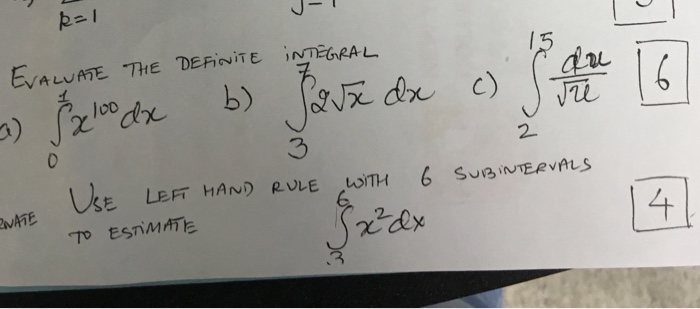 k=1
EVALUATE THE DEFINITE INTEGRAL
a) ∫₀¹ x¹⁰⁰ dx b) ∫₃⁷ 2√x dx c) ∫₂¹⁵ du/√u 6
USE LEFT HAND RULE WITH 6 SUBINTERVALS
TO ESTIMATE ∫₃⁶ x² dx 4